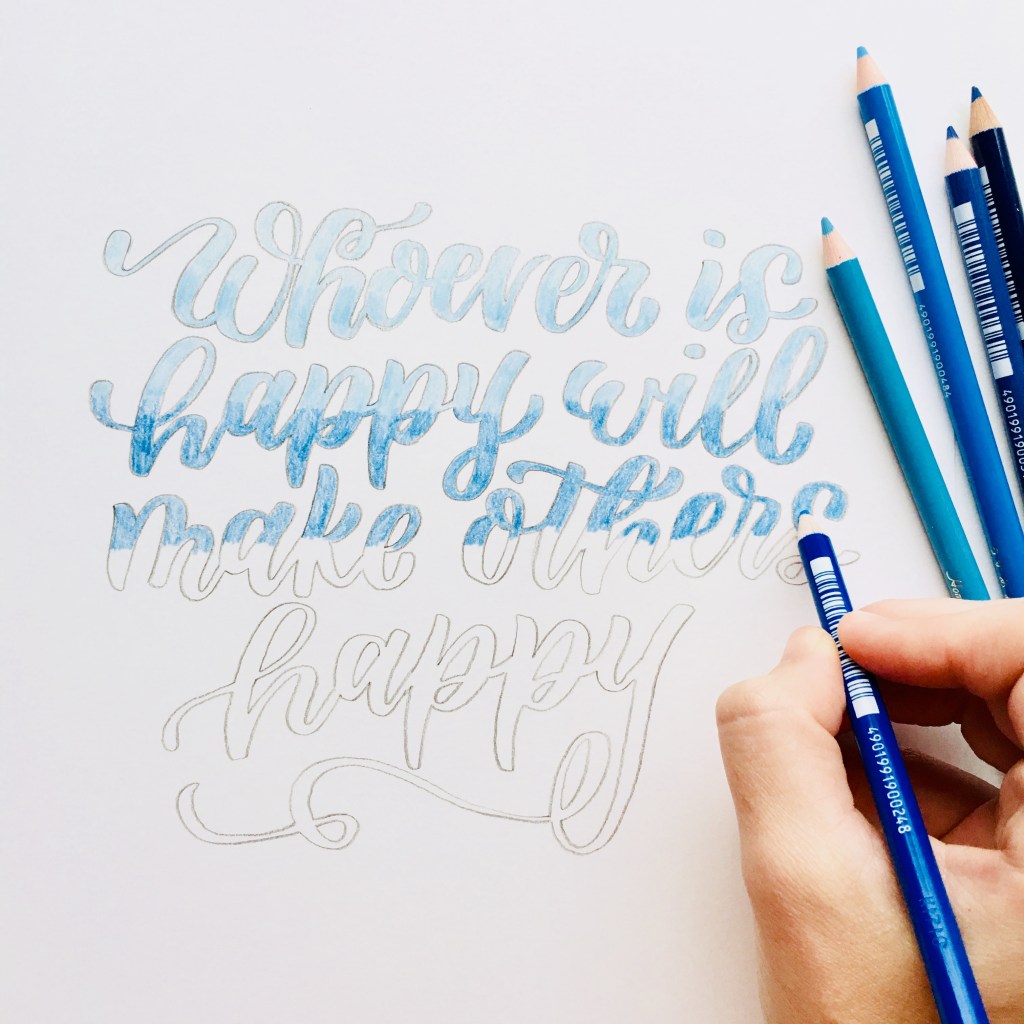 Whoever is
happy will
make others
happy
4901991900484
4901991900248